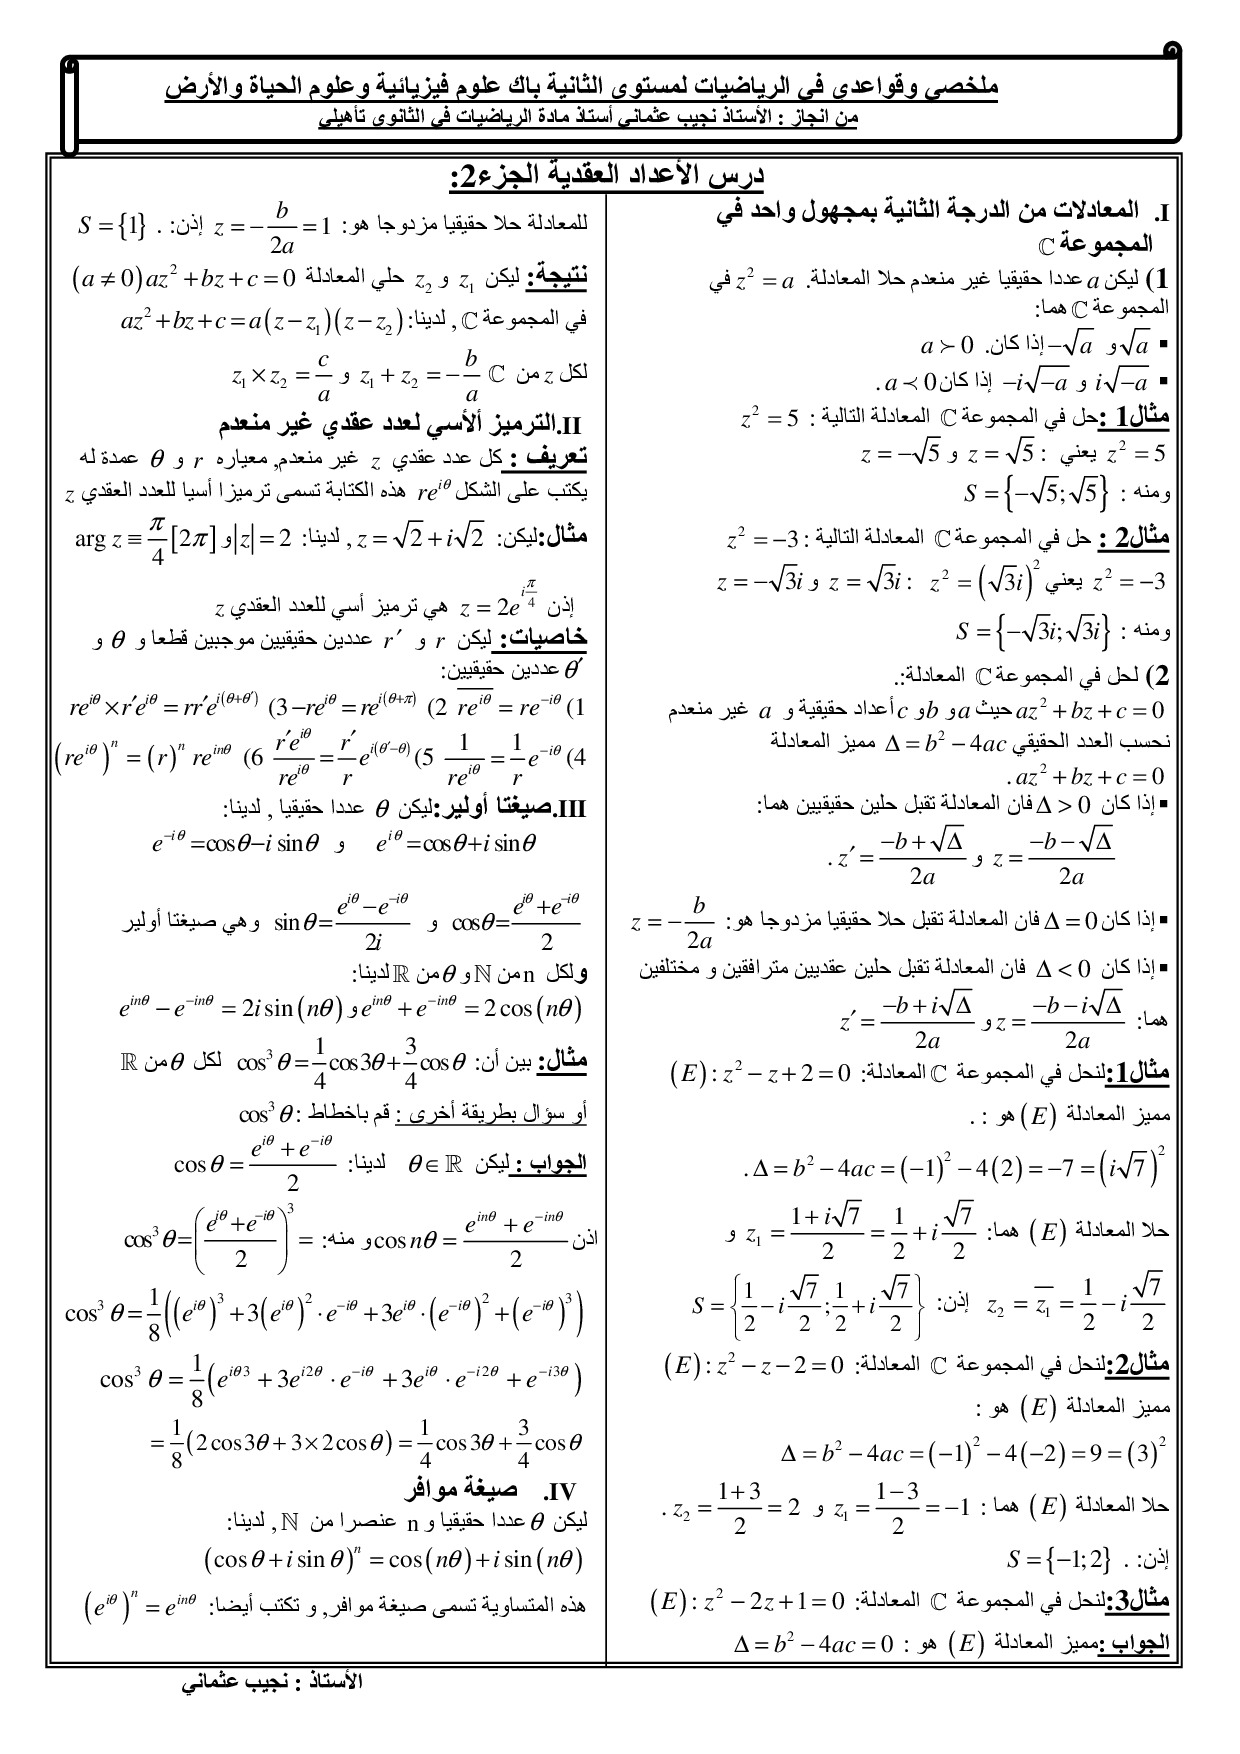 ملخصي وقواعدي في الرياضيات لمستوى الثانية باك علوم فيزيائية وعلوم الحياة والأرض
من انجاز : الأستاذ نجيب عثماني أستاذ مادة الرياضيات في الثانوي تأهيلي
درس الأعداد العقدية الجزء2:
I. المعادلات من الدرجة الثانية بمجهول واحد في
المجموعة ℂ
1) ليكن a عددا حقيقيا غير منعدم حلا المعادلة. z² = a في
المجموعة ℂ هما:
▪ √a و −√a إذا كان. a ≻ 0
▪ i√−a و −i√−a إذا كان a ≺ 0 .
مثال1 :حل في المجموعة ℂ المعادلة التالية : z² = 5
z² = 5 يعني : z = √5 و z = −√5
ومنه : S = {−√5; √5}
مثال2 : حل في المجموعة ℂ المعادلة التالية : z² = −3
z² = −3 يعني z² = (√3i)² : z = √3i و z = −√3i
ومنه : S = {−√3i; √3i}
2) لحل في المجموعة ℂ المعادلة:.
az² + bz + c = 0 حيث a و b و c أعداد حقيقية و a غير منعدم
نحسب العدد الحقيقي Δ = b² − 4ac مميز المعادلة
az² + bz + c = 0 .
▪ إذا كان Δ > 0 فان المعادلة تقبل حلين حقيقيين هما:
z = (−b − √Δ)/2a و z′ = (−b + √Δ)/2a .
▪ إذا كان Δ = 0 فان المعادلة تقبل حلا حقيقيا مزدوجا هو: z = −b/2a
▪ إذا كان Δ < 0 فان المعادلة تقبل حلين عقديين مترافقين و مختلفين
هما: z = (−b − i√Δ)/2a و z′ = (−b + i√Δ)/2a
مثال1:لنحل في المجموعة ℂ المعادلة: (E): z² − z + 2 = 0
مميز المعادلة (E) هو : .
Δ = b² − 4ac = (−1)² − 4(2) = −7 = (i√7)² .
حلا المعادلة (E) هما: z₁ = (1 + i√7)/2 = 1/2 + i√7/2 و
z₂ = z̅₁ = 1/2 − i√7/2 إذن: S = {1/2 − i√7/2 ; 1/2 + i√7/2}
مثال2:لنحل في المجموعة ℂ المعادلة: (E): z² − z − 2 = 0
مميز المعادلة (E) هو :
Δ = b² − 4ac = (−1)² − 4(−2) = 9 = (3)²
حلا المعادلة (E) هما : z₁ = (1−3)/2 = −1 و z₂ = (1+3)/2 = 2 .
إذن: . S = {−1; 2}
مثال3:لنحل في المجموعة ℂ المعادلة: (E): z² − 2z + 1 = 0
الجواب :مميز المعادلة (E) هو : Δ = b² − 4ac = 0
للمعادلة حلا حقيقيا مزدوجا هو: z = −b/2a = 1 إذن: . S = {1}
نتيجة: ليكن z₁ و z₂ حلي المعادلة az² + bz + c = 0 (a ≠ 0)
في المجموعة ℂ , لدينا: az² + bz + c = a(z − z₁)(z − z₂)
لكل z من ℂ z₁ + z₂ = −b/a و z₁ × z₂ = c/a
II.الترميز ألأسي لعدد عقدي غير منعدم
تعريف : كل عدد عقدي z غير منعدم, معياره r و θ عمدة له
يكتب على الشكل re^{iθ} هذه الكتابة تسمى ترميزا أسيا للعدد العقدي z
مثال:ليكن: z = √2 + i√2 , لدينا: |z| = 2 و arg z ≡ π/4 [2π]
إذن z = 2e^{iπ/4} هي ترميز أسي للعدد العقدي z
خاصيات: ليكن r و r′ عددين حقيقيين موجبين قطعا و θ و
θ′ عددين حقيقيين:
1) \overline{re^{iθ}} = re^{−iθ} 2) −re^{iθ} = re^{i(θ+π)} 3) re^{iθ} × r′e^{iθ} = rr′e^{i(θ+θ′)}
4) 1/re^{iθ} = (1/r)e^{−iθ} 5) r′e^{iθ}/re^{iθ} = (r′/r)e^{i(θ′−θ)} 6) (re^{iθ})ⁿ = (r)ⁿ re^{inθ}
III.صيغتا أولير:ليكن θ عددا حقيقيا , لدينا:
e^{iθ} = cosθ + i sinθ و e^{−iθ} = cosθ − i sinθ
cosθ = (e^{iθ} + e^{−iθ})/2 و sinθ = (e^{iθ} − e^{−iθ})/2i وهي صيغتا أولير
ولكل n من ℕ و θ من ℝ لدينا:
e^{inθ} + e^{−inθ} = 2cos(nθ) و e^{inθ} − e^{−inθ} = 2i sin(nθ)
مثال: بين أن: cos³θ = 1/4 cos3θ + 3/4 cosθ لكل θ من ℝ
أو سؤال بطريقة أخرى : قم باخطاط : cos³θ
الجواب : ليكن θ ∈ ℝ لدينا: cosθ = (e^{iθ} + e^{−iθ})/2
اذن cos nθ = (e^{inθ} + e^{−inθ})/2 و منه: = cos³θ = ((e^{iθ} + e^{−iθ})/2)³
cos³θ = 1/8 ((e^{iθ})³ + 3(e^{iθ})² · e^{−iθ} + 3e^{iθ} · (e^{−iθ})² + (e^{−iθ})³)
cos³θ = 1/8 (e^{iθ3} + 3e^{i2θ} · e^{−iθ} + 3e^{iθ} · e^{−i2θ} + e^{−i3θ})
= 1/8 (2cos3θ + 3 × 2cosθ) = 1/4 cos3θ + 3/4 cosθ
IV. صيغة موافر
ليكن θ عددا حقيقيا و n عنصرا من ℕ , لدينا:
(cosθ + i sinθ)ⁿ = cos(nθ) + i sin(nθ)
هذه المتساوية تسمى صيغة موافر, و تكتب أيضا: (e^{iθ})ⁿ = e^{inθ}
الأستاذ : نجيب عثماني